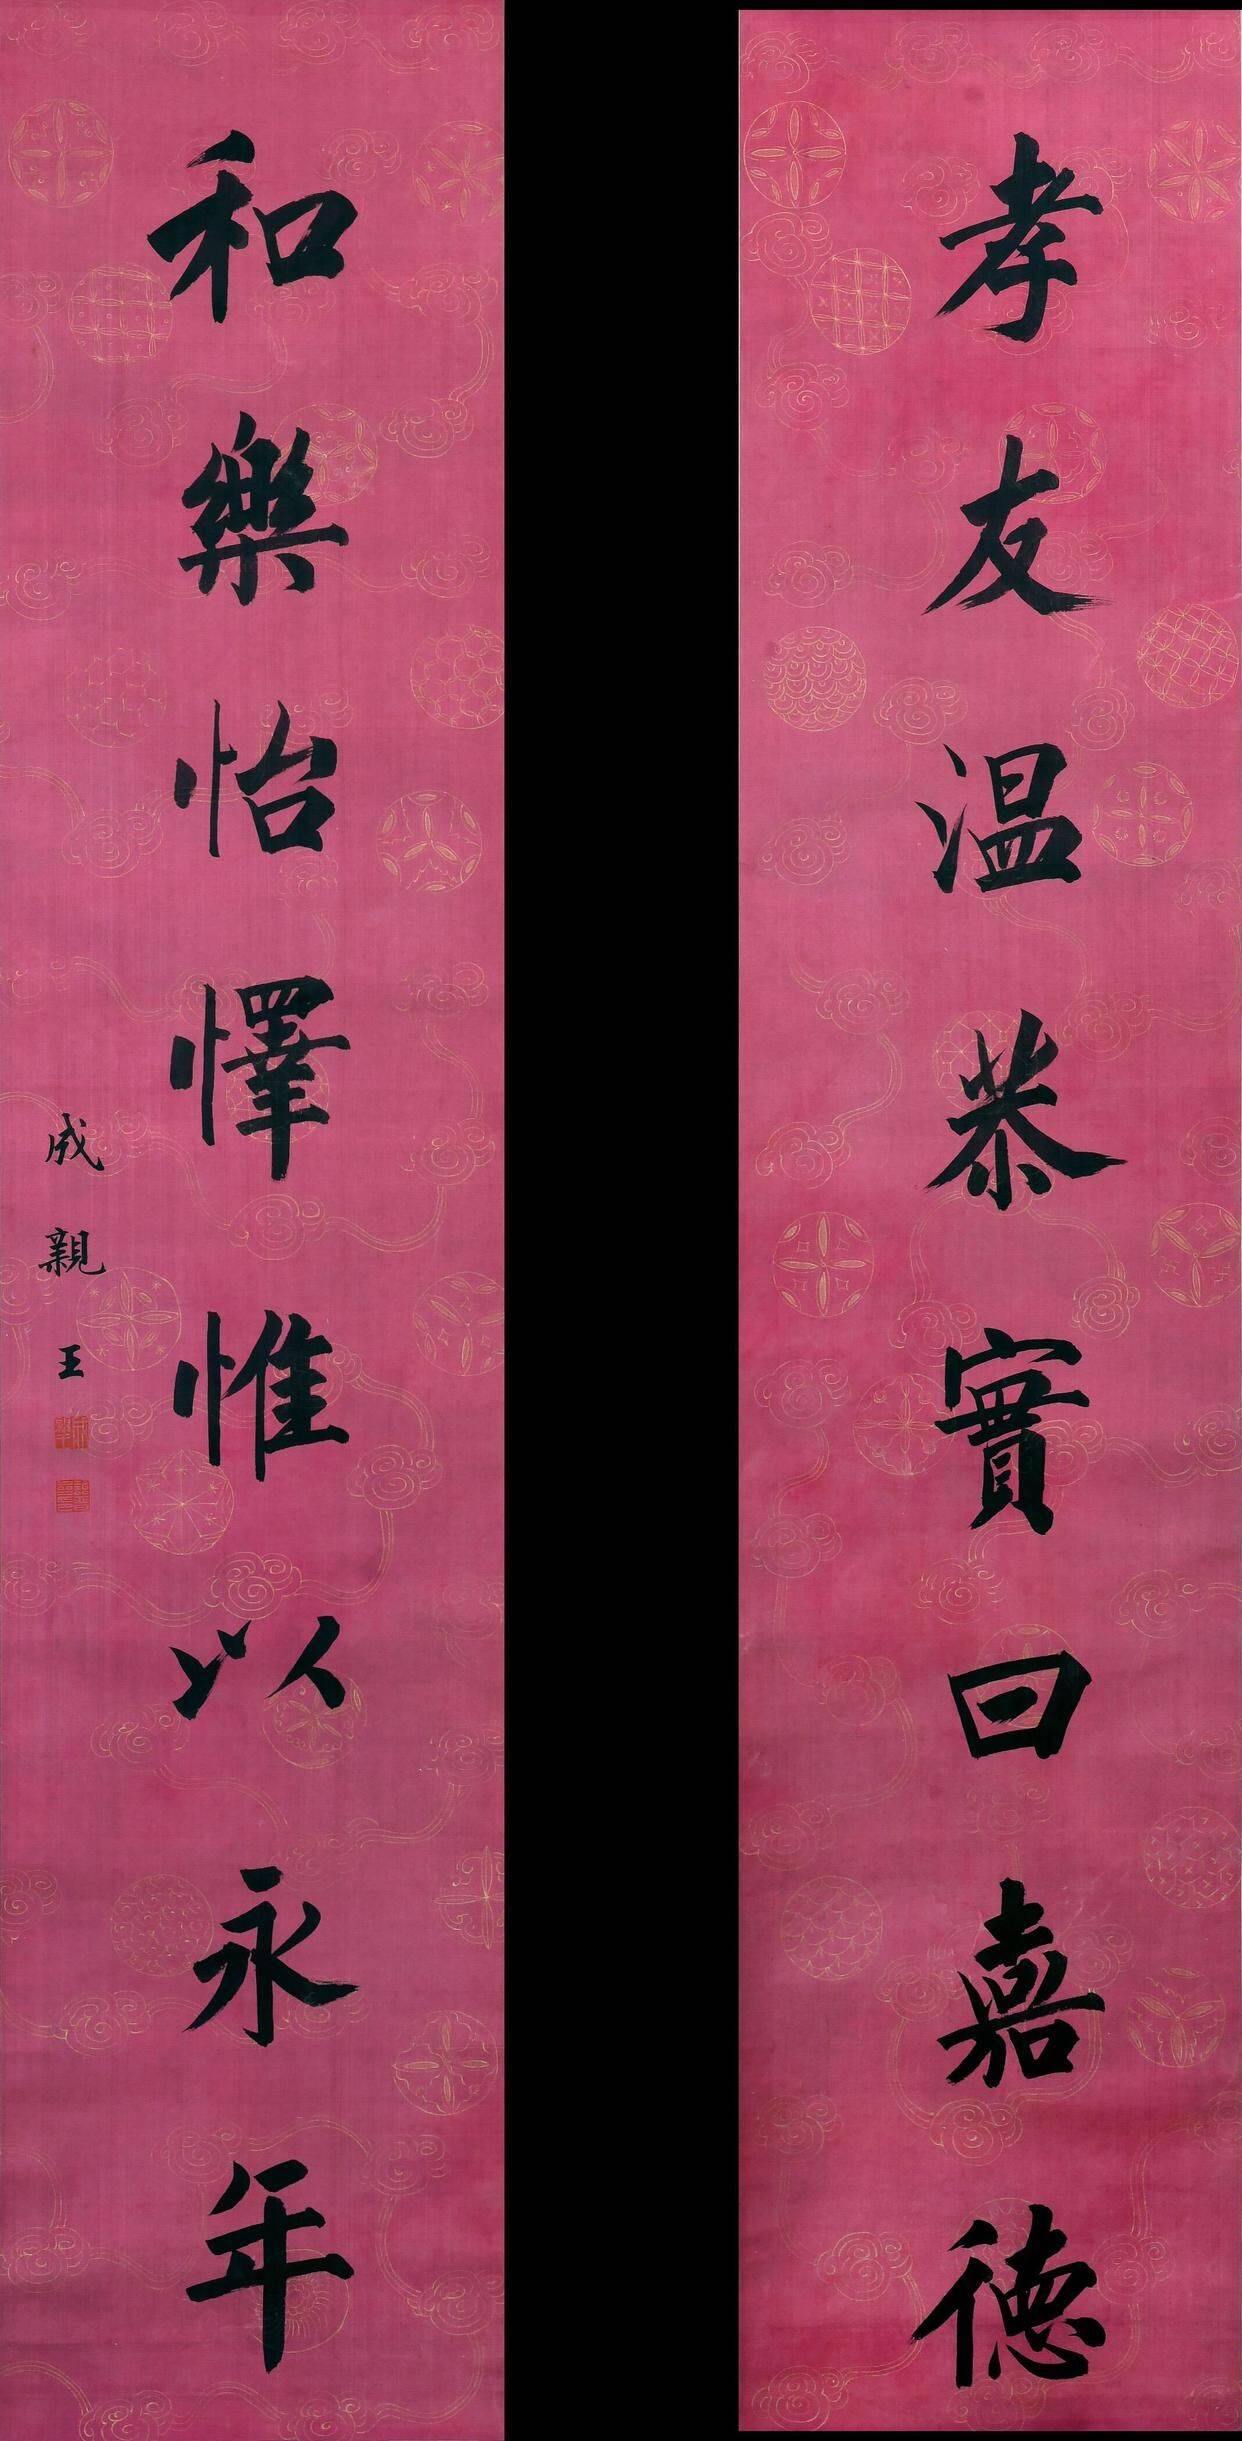 孝友温恭實曰嘉德
和樂怡懌惟以永年
成親王